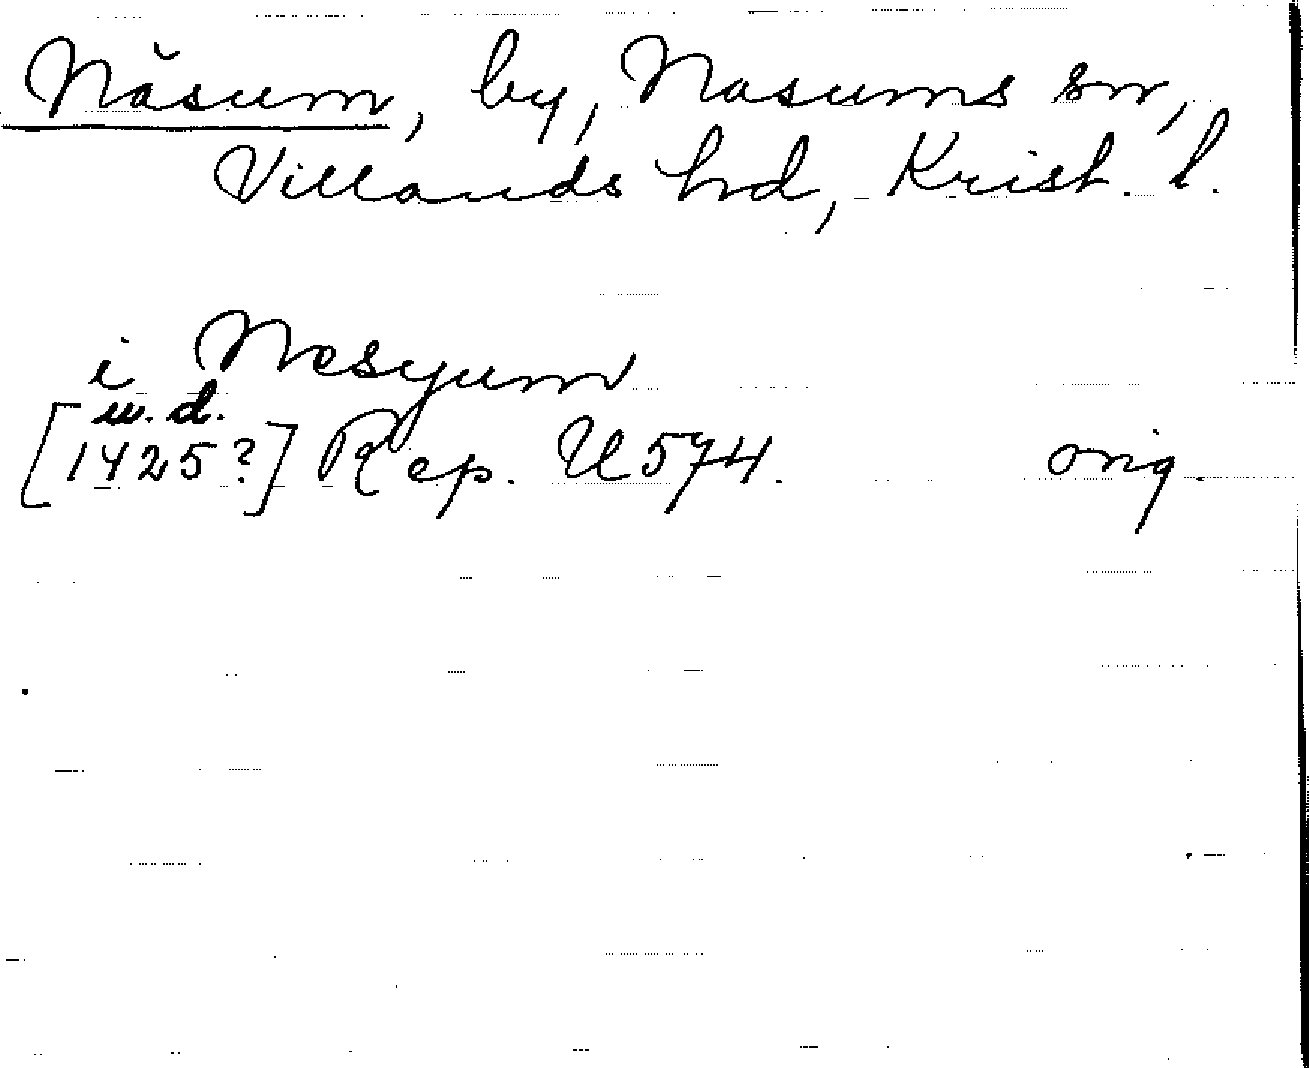 Näsum, by, Nasums sn,
Villands hrd, Krist. l.
i Nesyum
u. d.
[1425?] Rep. U 574. orig.